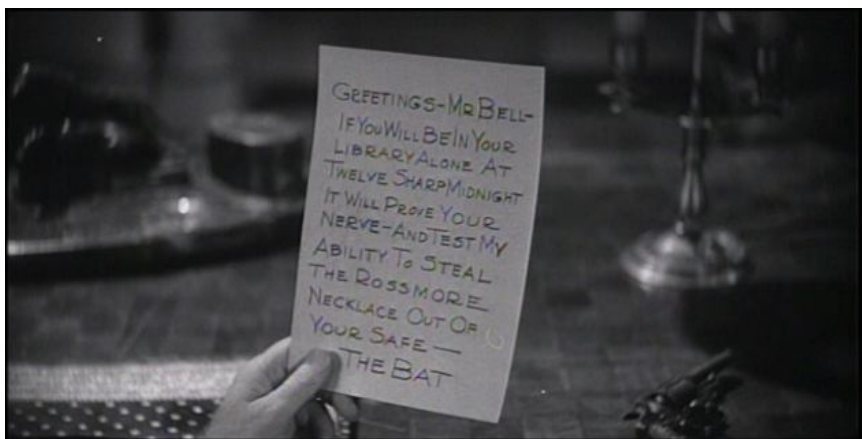 GREETINGS-MR BELL-
IF YOU WILL BE IN YOUR
LIBRARY ALONE AT
TWELVE SHARP MIDNIGHT
IT WILL PROVE YOUR
NERVE-AND TEST MY
ABILITY TO STEAL
THE ROSSMORE
NECKLACE OUT OF
YOUR SAFE—
-THE BAT